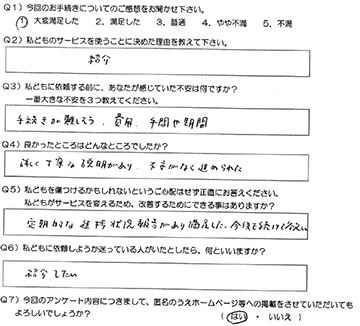 Q1）今回のお手続きについてのご感想をお聞かせ下さい。
1．大変満足した　2．満足した　3．普通　4．やや不満　5．不満
Q2）私どものサービスを使うことに決めた理由を教えて下さい。
紹介
Q3）私どもに依頼する前に、あなたが感じていた不安は何ですか？
一番大きな不安を3つ教えてください。
手続きが難しそう、費用、手間や期間
Q4）良かったところはどんなところでしたか？
詳しく丁寧な説明があり、不安がなく進められた
Q5）私どもを傷つけるかもしれないというご心配はせず正直にお答えください。
私どもがサービスを変えるため、改善するためにできる事はありますか？
定期的な進捗状況報告があり満足した。今後も続けて
Q6）私どもに依頼しようか迷っている人がいたとしたら、何といいますか？
紹介したい
Q7）今回のアンケート内容につきまして、匿名のうえホームページ等への掲載をさせていただいても
よろしいでしょうか？　（はい・いいえ）